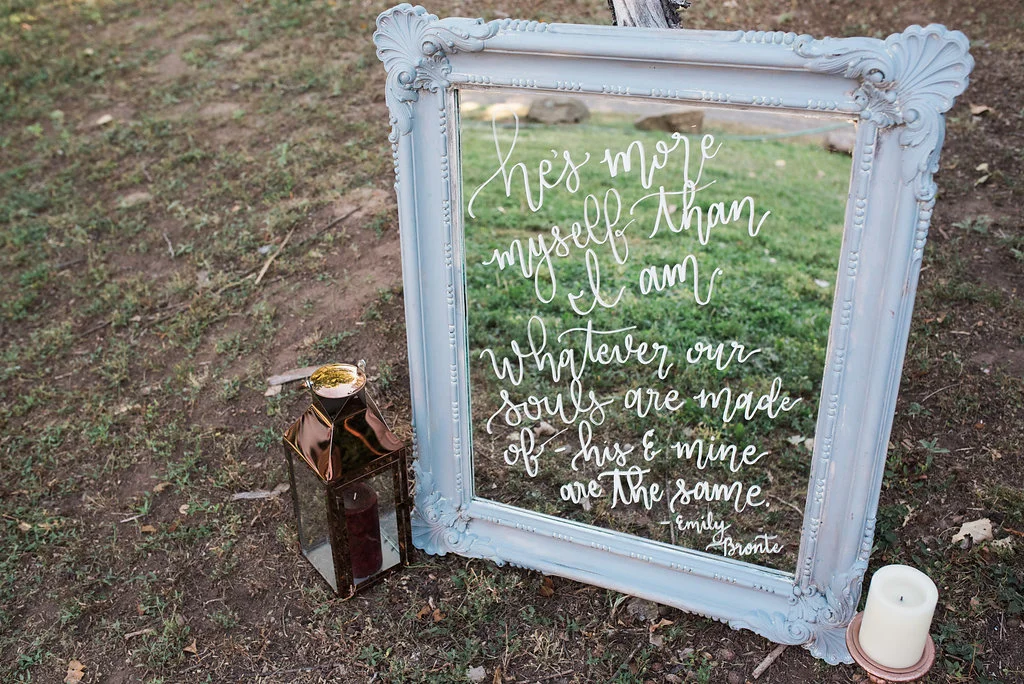 he's more
myself than
I am
whatever our
souls are made
of - his & mine
are the same.
- Emily
Bronte